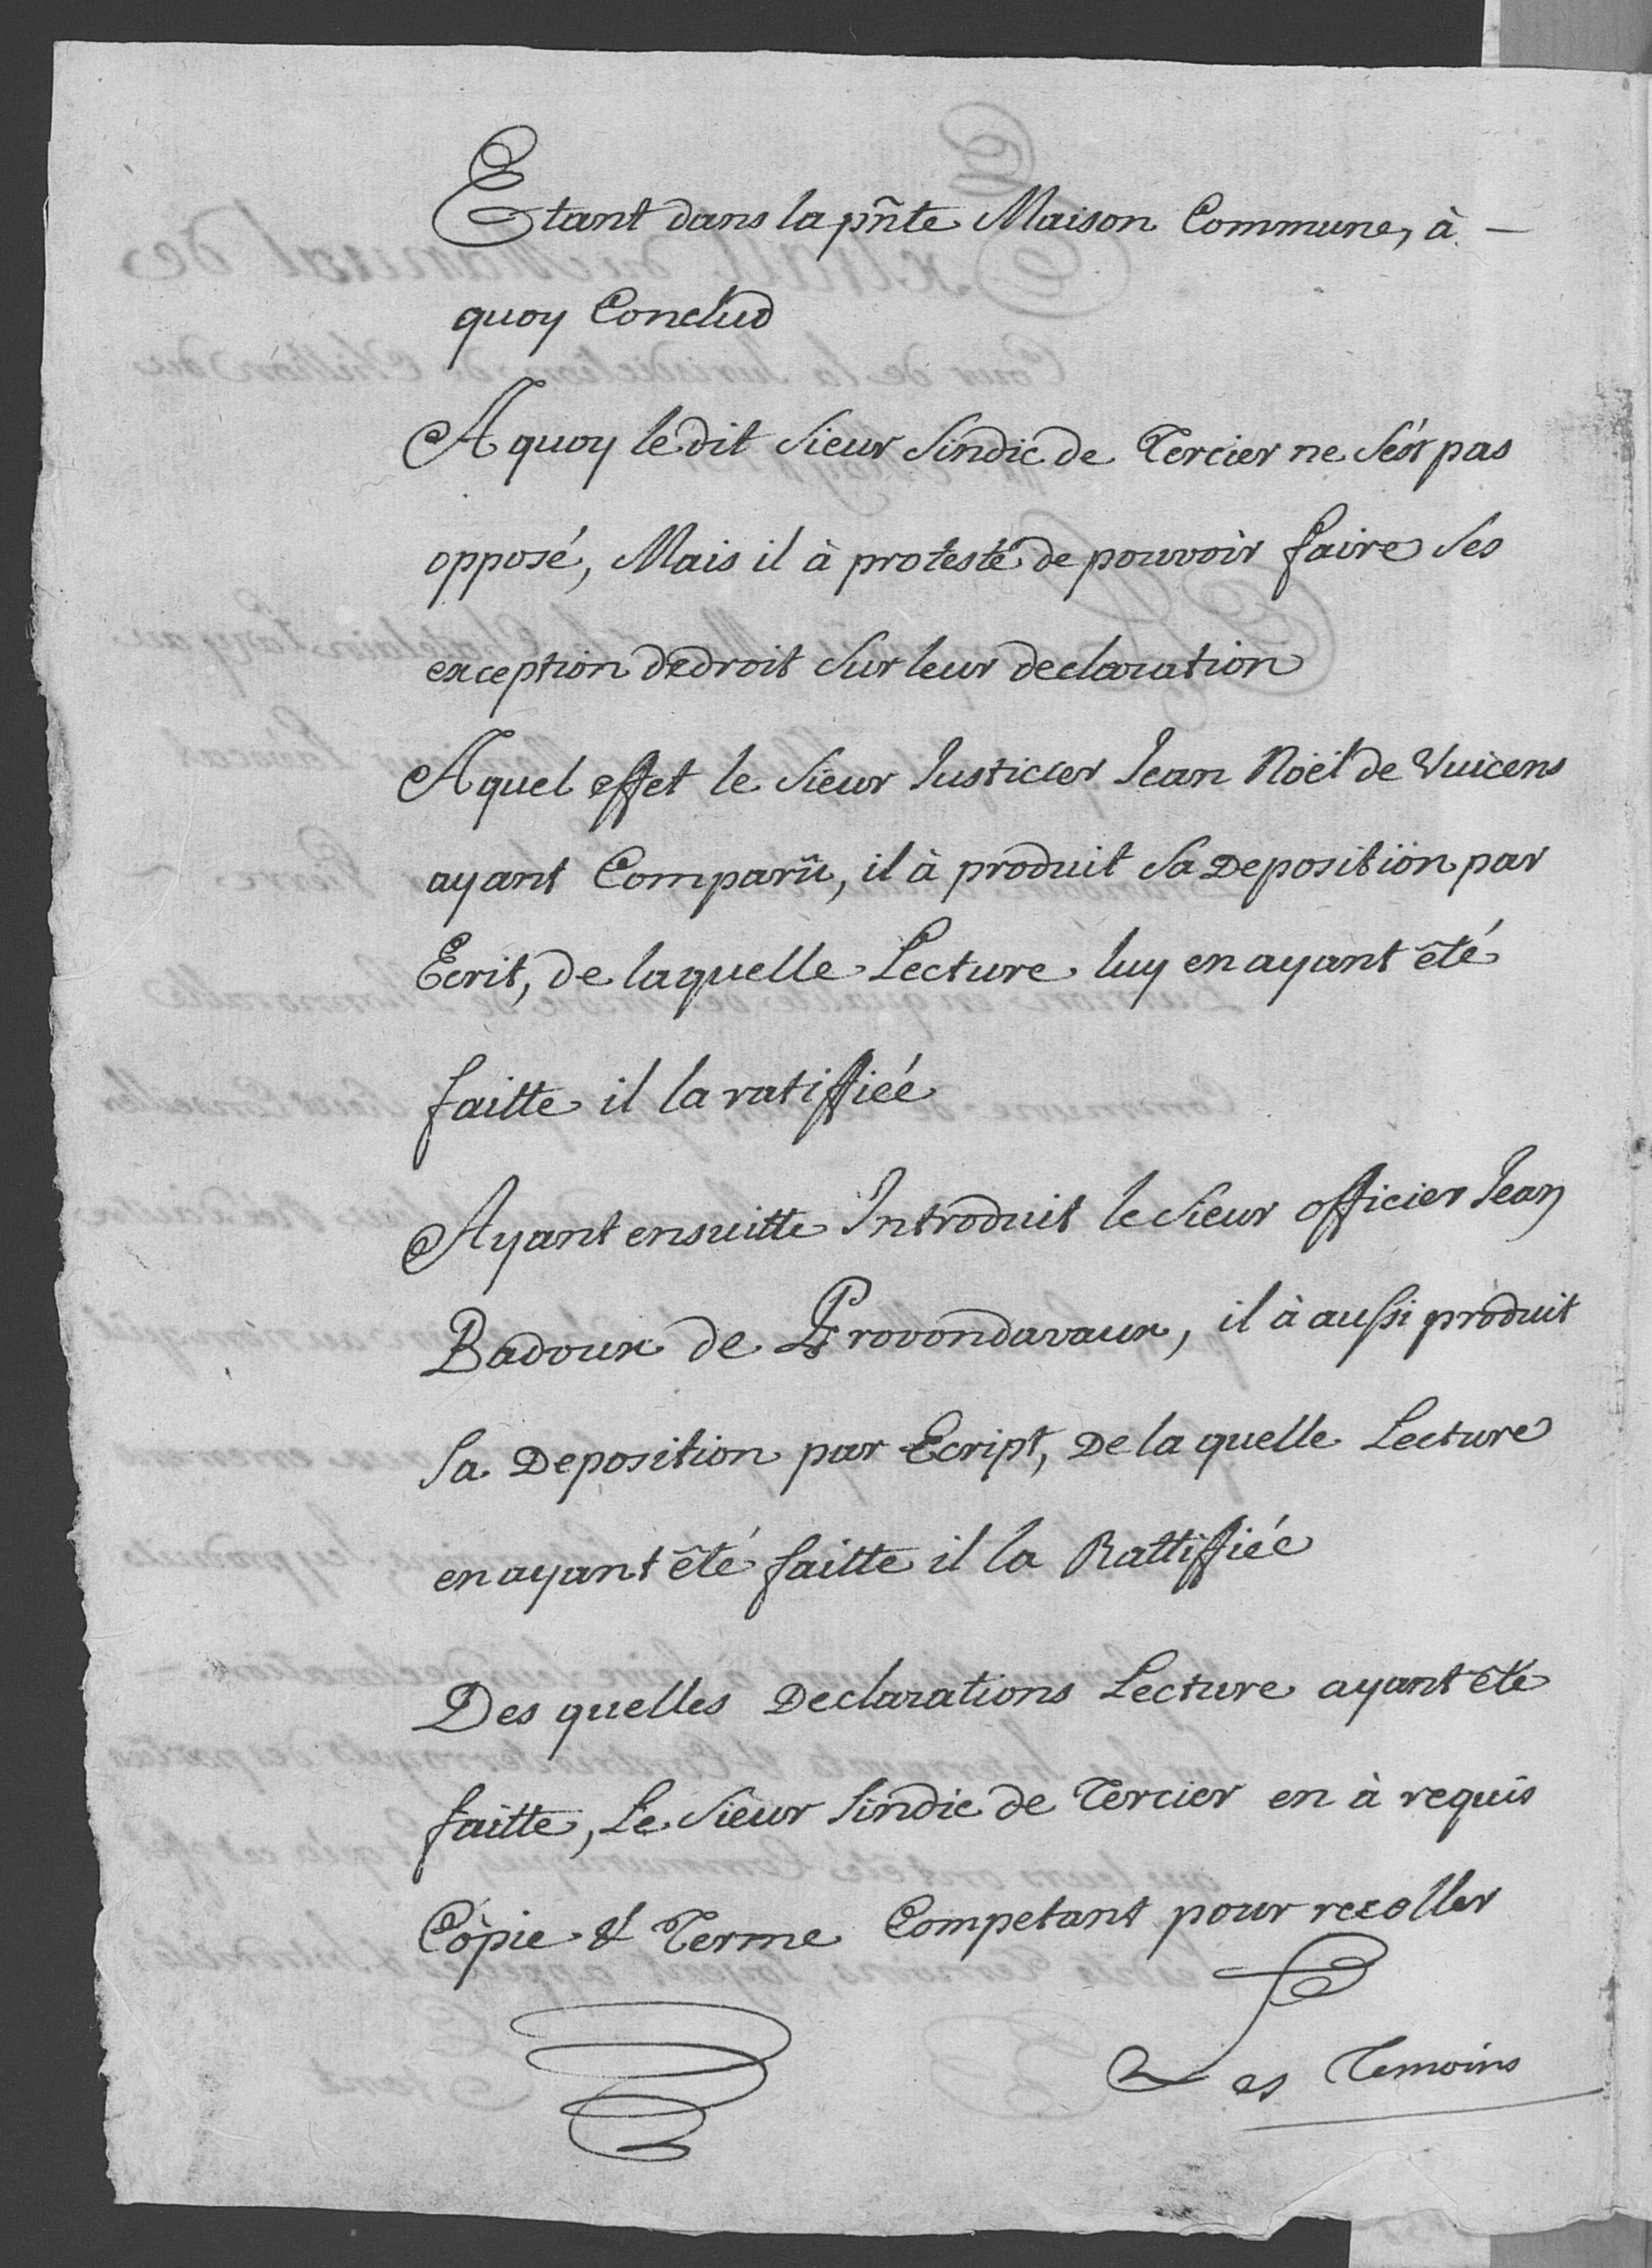 Etant dans la pñte Maison Commune, à —
quoy Conclud
A quoy le dit Sieur Sindic de Tercier ne s'ést pas
opposé, Mais il à protesté de pouvoir faire Ses
exception de droit Sur leur declaration
A quel effet le Sieur Justicier Jean Noël de Vuicens
ayant Comparû, il à produit Sa Deposition par
Ecrit, de laquelle Lecture luy en ayant êté
faitte il la ratiffiéé
Ayant ensuitte Introduit le Sieur officier Jean
Badoux de Provondavaux, il à aussi produit
Sa Deposition par Ecript, De la quelle Lecture
en ayant êté faitte il la Rattiffiéé
Des quelles Declarations Lecture ayant êté
faitte, Le Sieur Sindic de Tercier en à requis
Còpie & Terme Competant pour recoller
Les Temoins